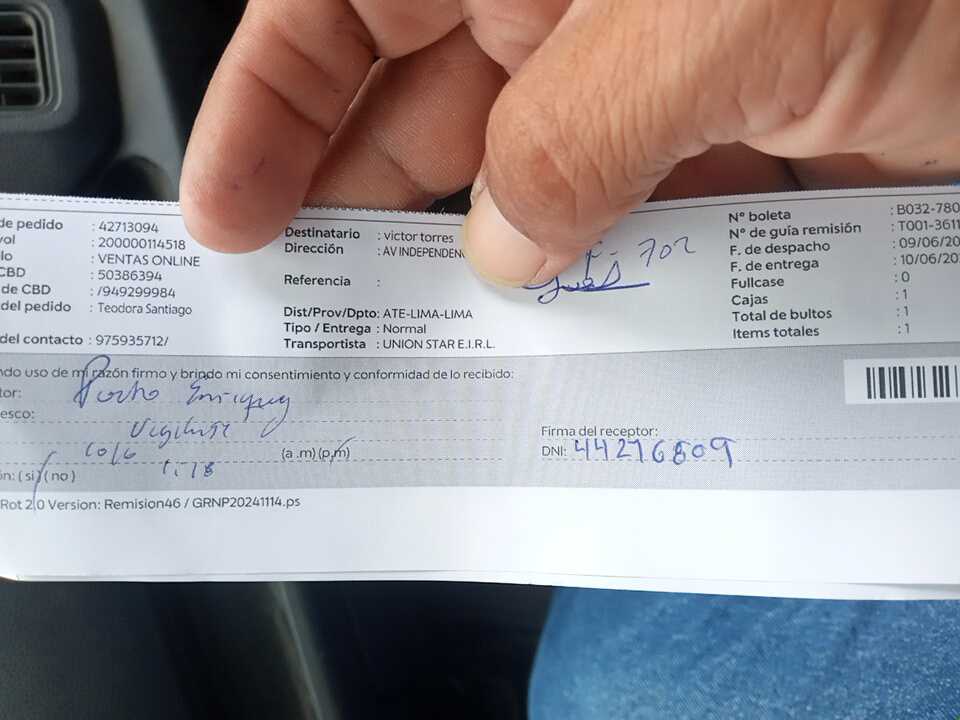 de pedido : 42713094
vol : 200000114518
lo : VENTAS ONLINE
CBD : 50386394
de CBD : /949299984
del pedido : Teodora Santiago
del contacto : 975935712/
Destinatario : victor torres
Dirección : AV INDEPENDEN
Referencia :
Dist/Prov/Dpto: ATE-LIMA-LIMA
Tipo / Entrega : Normal
Transportista : UNION STAR E.I.R.L.
702
N° boleta : B032-780
N° de guía remisión : T001-3611
F. de despacho : 09/06/20
F. de entrega : 10/06/20
Fullcase : 0
Cajas : 1
Total de bultos : 1
Items totales : 1
ndo uso de mi razón firmo y brindo mi consentimiento y conformidad de lo recibido:
tor:
esco:
10/6 (a .m)(p,m)
1:18
ón: ( si )( no )
Firma del receptor:
DNI: 44276809
Rot 2.0 Version: Remision46 / GRNP20241114.ps